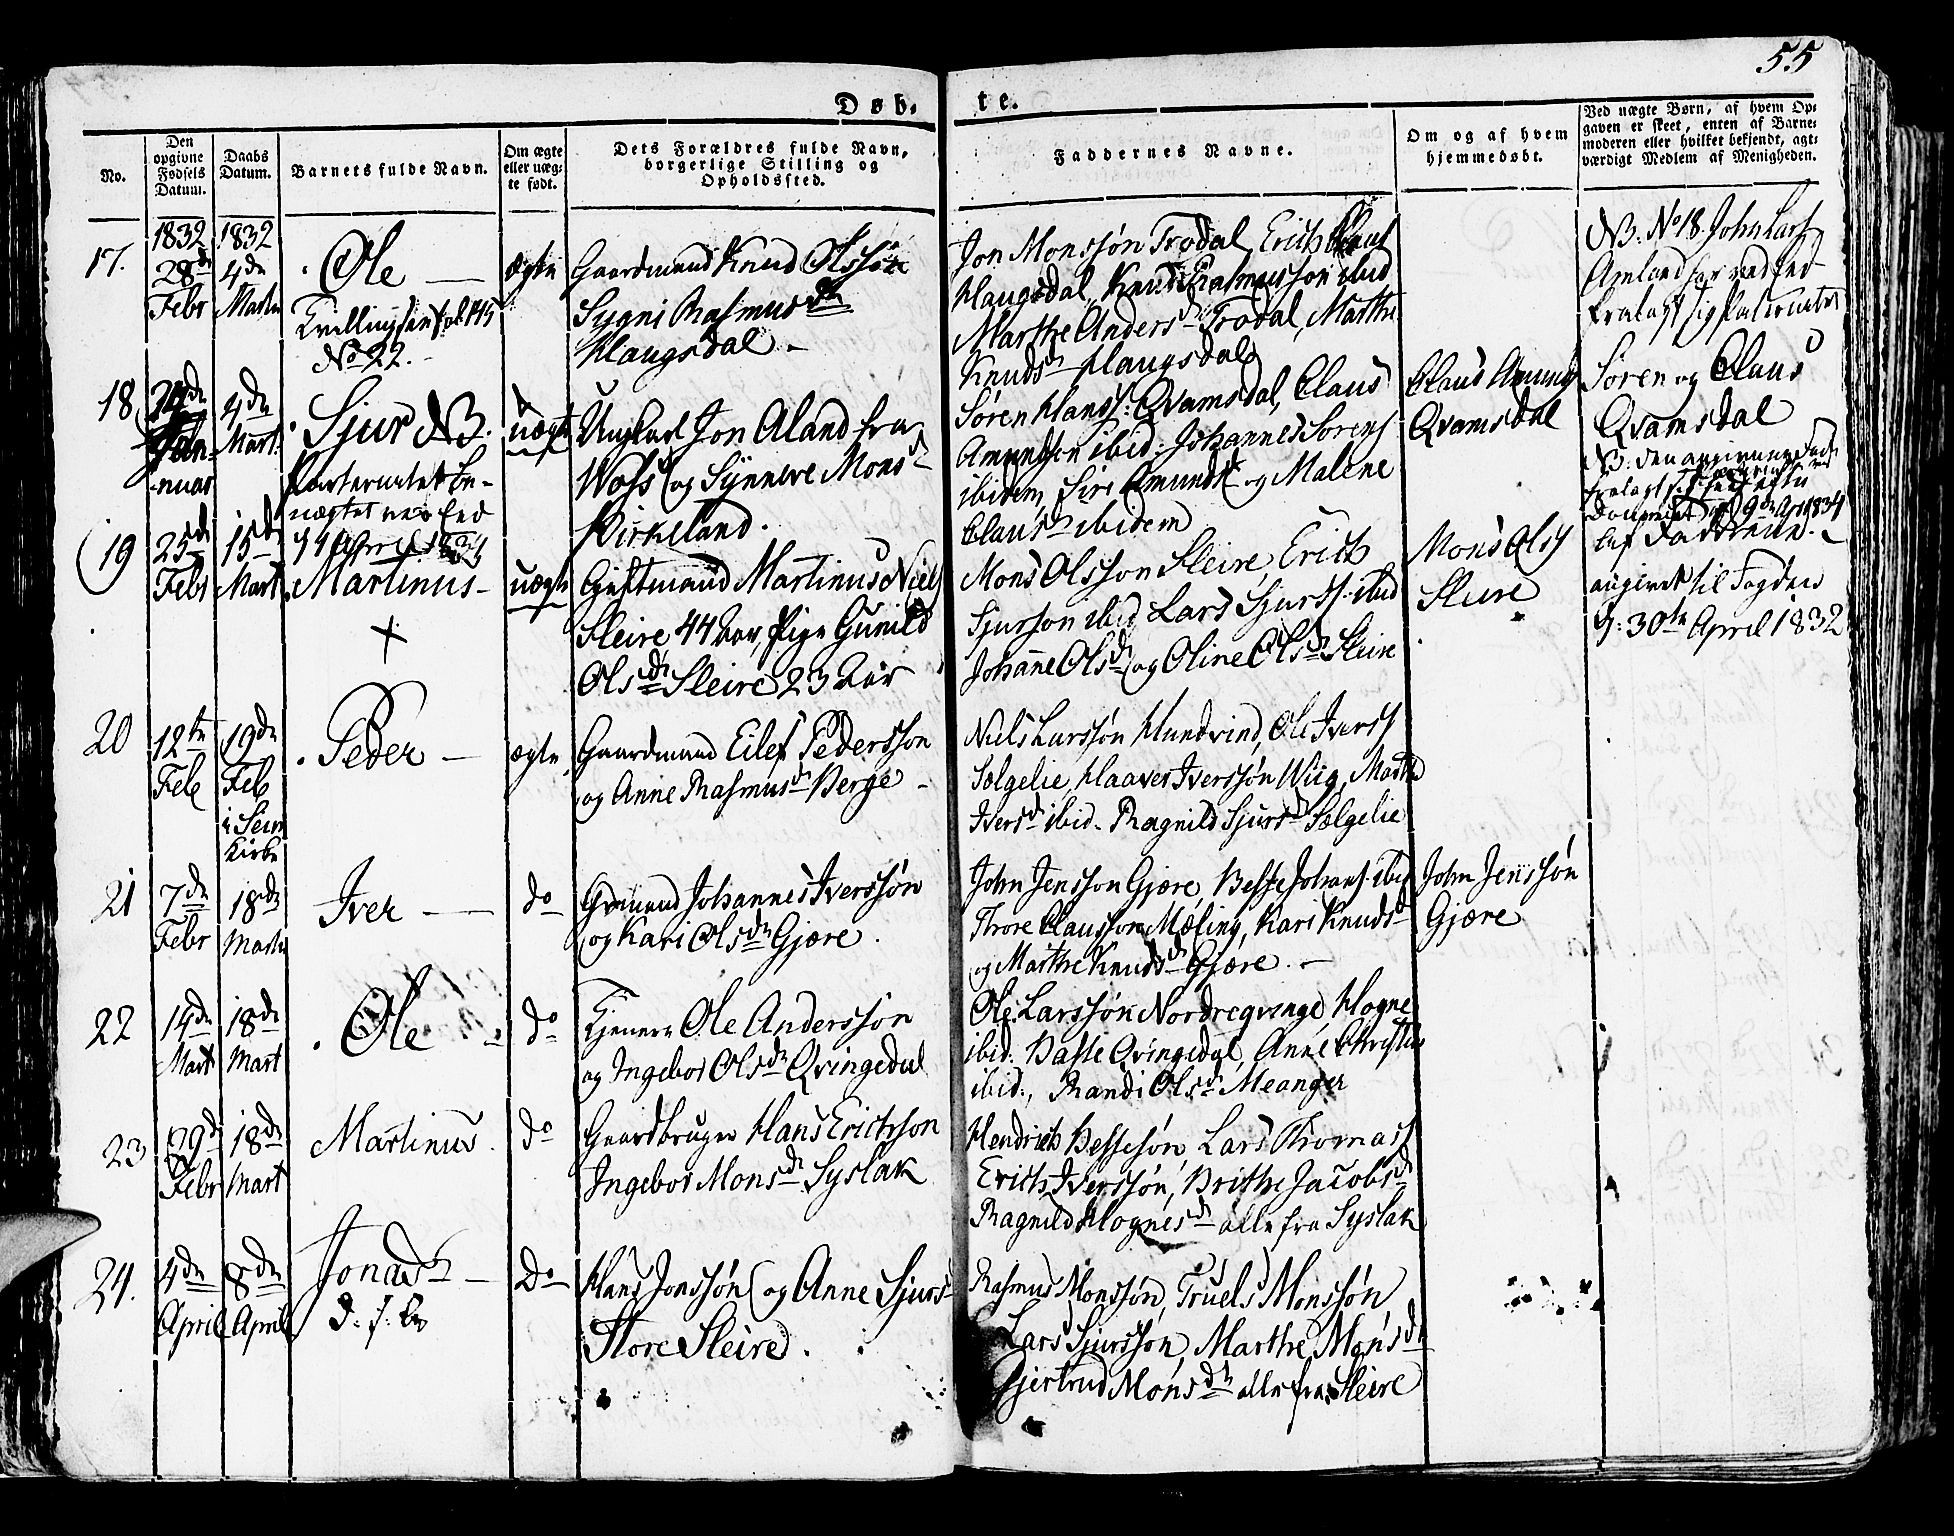 55
Døb- te.
No.
Den opgivne Fødsels Datum.
Daabs Datum.
Barnets fulde Navn.
Om ægte eller uægte født.
Dets Forældres fulde Navn, borgerlige Stilling og Opholdssted.
Faddernes Navne.
Om og af hvem hjemmedøbt.
Ved uægte Børn, af hvem Opgaven er skeet, enten af Barnemoderen eller hvilket bekjendt, agtværdigt Medlem af Menigheden.
17.
1832
28de
Febr
1832
4de
Martii
Ole
Tvillingsøn fol 145
No 22.
ægte
Gaardmand Knud Olssøn
Sygni Rasmusdr
Haugsdal
Jon Monssøn Trodal, Erich Claus
Haugsdal, Knud Rasmussøn ibid
Marthe Andersdr Trodal, Marthe
Knudsdr Haugsdal
NB: No 18. John Lars
Amland har ved Eed
fralagt sig Paternitet
18
4de
Mart.
Sjur NB.
Paternitet be-
nægtet ved Eed
uægte
Ungkarl Jon Aland fra
Woss og Synneve Monsdr
Birkeland.
Søren Hanss: Qvamsdal, Claus
Amundson ibid: Johannes Sørens
ibidem, Siri Amundsdr og Malene
Clausdr ibidem
Claus Amunds
Qvamsdal
Søren og Claus
Qvamsdal
19
25de
Febr
15de
Mart
Martinus
+
uægte
Giftmand Martinus Niels
Sleire 44 Aar, Pige Gunild
Olsdr Sleire 23 Aar
Mons Olsson Sleire, Erich
Sjurson ibid, Lars Sjurss. ibid
Johanne Olsdr og Oline Olsdr Sleire
Mons Ols
Sleire
af Fadderne.
angivet til Fogden
d: 30te April 1832
20
12te
Feb
19de
Feb
i Seim
Kirke
Peder
ægte
Gaardmand Eilef Pedersson
og Anne Rasmusdr Berge
Niels Larssøn Hundvind, Ole Iverss
Sælgelie, Haaver Iverssøn Wiig, Marthe
Iversdr ibid. Ragnild Sjursdr Sælgelie
21
7de
Febr
18de
Martii
Iver
do
Grmand Johannes Iverssøn
og Kari Olsdr Gjære.
John Jensson Gjære, Besse Johans. ibid
Thore Clausson Mæling, Kari Knudsdr
og Marthe Knudsdr Gjære.
John Jenssøn
Gjære
22
14de
Mart
18de
Mart
Ole
do
Tjenere Ole Anderssøn
og Ingebor Olsdr Qvingedal
Ole Larssøn Nordreqvinge, Hogne
ibid. Basse Qvingedal, Anne Christies
ibid., Randi Olsdr Meanger
23
29de
Febr
18de
Mart
Martinus.
do
Gaardbruger Hans Erichson
Ingebor Monsdr Syslak
Hendrich Bessesøn, Lars Thomass
Erich Iverssøn, Brithe Jacobsdr
Ragnild Hognesdr alle fra Syslak
24.
4de
April
8de
April
Jonas
do
Hans Jonssøn og Anne Sjurs
Store Sleire.
Rasmus Monssøn, Truels Monssøn,
Lars Sjurssøn, Marthe Monsdr
Gjertrud Monsdr alle fra Sleire